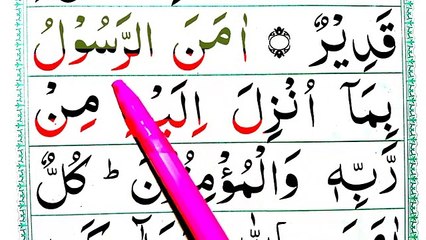 قَدِيْرٌ ۝ اٰمَنَ الرَّسُوْلُ
بِمَآ اُنْزِلَ اِلَيْهِ مِنْ
رَّبِّهٖ وَالْمُؤْمِنُوْنَ ؕ كُلٌّ